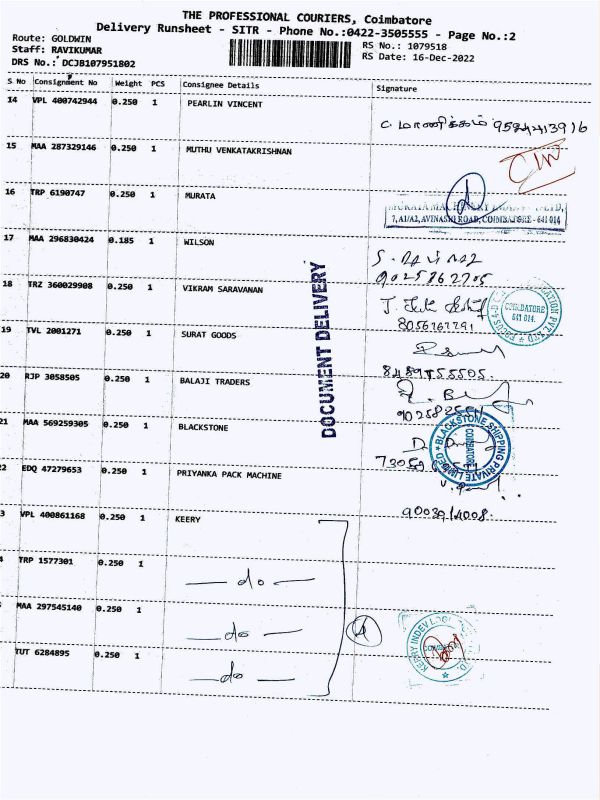 THE PROFESSIONAL COURIERS, Coimbatore
Delivery Runsheet - SITR - Phone No.:0422-3505555 - Page No.:2
Route: GOLDWIN
Staff: RAVIKUMAR
DRS No.: DCJB107951802
RS No.: 1079518
RS Date: 16-Dec-2022
S No Consignment No Weight PCS Consignee Details Signature
14 VPL 400742944 0.250 1 PEARLIN VINCENT
உ மாணிக்கம்
15 MAA 287329146 0.250 1 MUTHU VENKATAKRISHNAN
16 TRP 6190747 0.250 1 MURATA
MURATA MACHINERY INDIA PVT LTD,
7, A1/A2, AVINASHI ROAD, COIMBATORE - 641 014
17 MAA 296830424 0.185 1 WILSON
18 TRZ 360029908 0.250 1 VIKRAM SARAVANAN
8056767791
COIMBATORE
641 014.
19 TVL 2001271 0.250 1 SURAT GOODS
8489755505.
20 RJP 3058505 0.250 1 BALAJI TRADERS
21 MAA 569259305 0.250 1 BLACKSTONE
BLACKSTONE SHIPPING PRIVATE LIMITED
COIMBATORE
22 EDQ 47279653 0.250 1 PRIYANKA PACK MACHINE
9003914008.
3 VPL 400861168 0.250 1 KEERY
4 TRP 1577301 0.250 1
— do —
MAA 297545140 0.250 1
— do —
TUT 6284895 0.250 1
— do —
4
KERRY INDEV
DOCUMENT DELIVERY